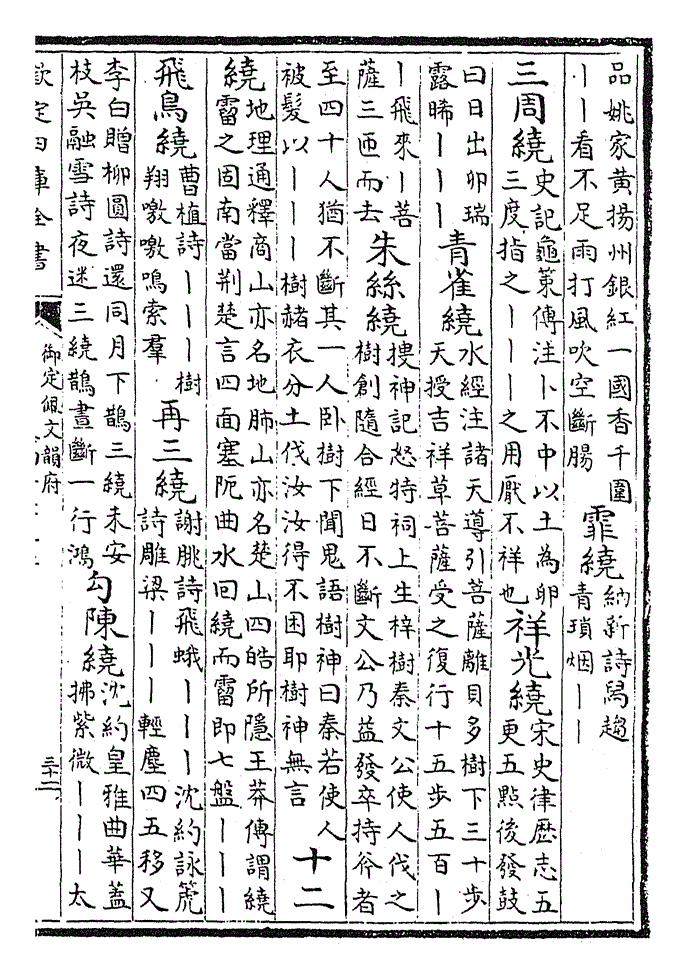 品姚家黃揚州銀紅一國香千圍
丨丨看不足雨打風吹空斷腸
霏繞
納新詩舄趨
青瑣烟丨丨
三周繞
史記龜策傳注卜不中以土為卵
三度指之丨丨丨之用厭不祥也
祥光繞
宋史律歷志五
更五點後發鼓
曰日出卯瑞
露晞丨丨丨
青雀繞
水經注諸天導引菩薩離貝多樹下三十步
天授吉祥草菩薩受之復行十五步五百丨
丨飛來丨菩
薩三匝而去
朱絲繞
搜神記怒特祠上生梓樹秦文公使人伐之
樹創隨合經日不斷文公乃益發卒持斧者
至四十人猶不斷其一人卧樹下聞鬼語樹神曰秦若使人
被髮以丨丨丨樹赭衣分土伐汝汝得不困耶樹神無言
十二
繞
地理通釋商山亦名地肺山亦名楚山四皓所隱王莽傳謂繞
霤之固南當荆楚言四面塞阨曲水回繞而霤即七盤丨丨丨
飛鳥繞
曹植詩丨丨丨樹
翔噭噭鳴索羣
再三繞
謝朓詩飛蛾丨丨丨沈約詠箎
詩雕梁丨丨丨輕塵四五移又
李白贈柳圓詩還同月下鵲三繞未安
枝吳融雪詩夜迷三繞鵲晝斷一行鴻
勾陳繞
沈約皇雅曲華蓋
拂紫微丨丨丨太
欽定四庫全書
御定佩文韻府
三十二